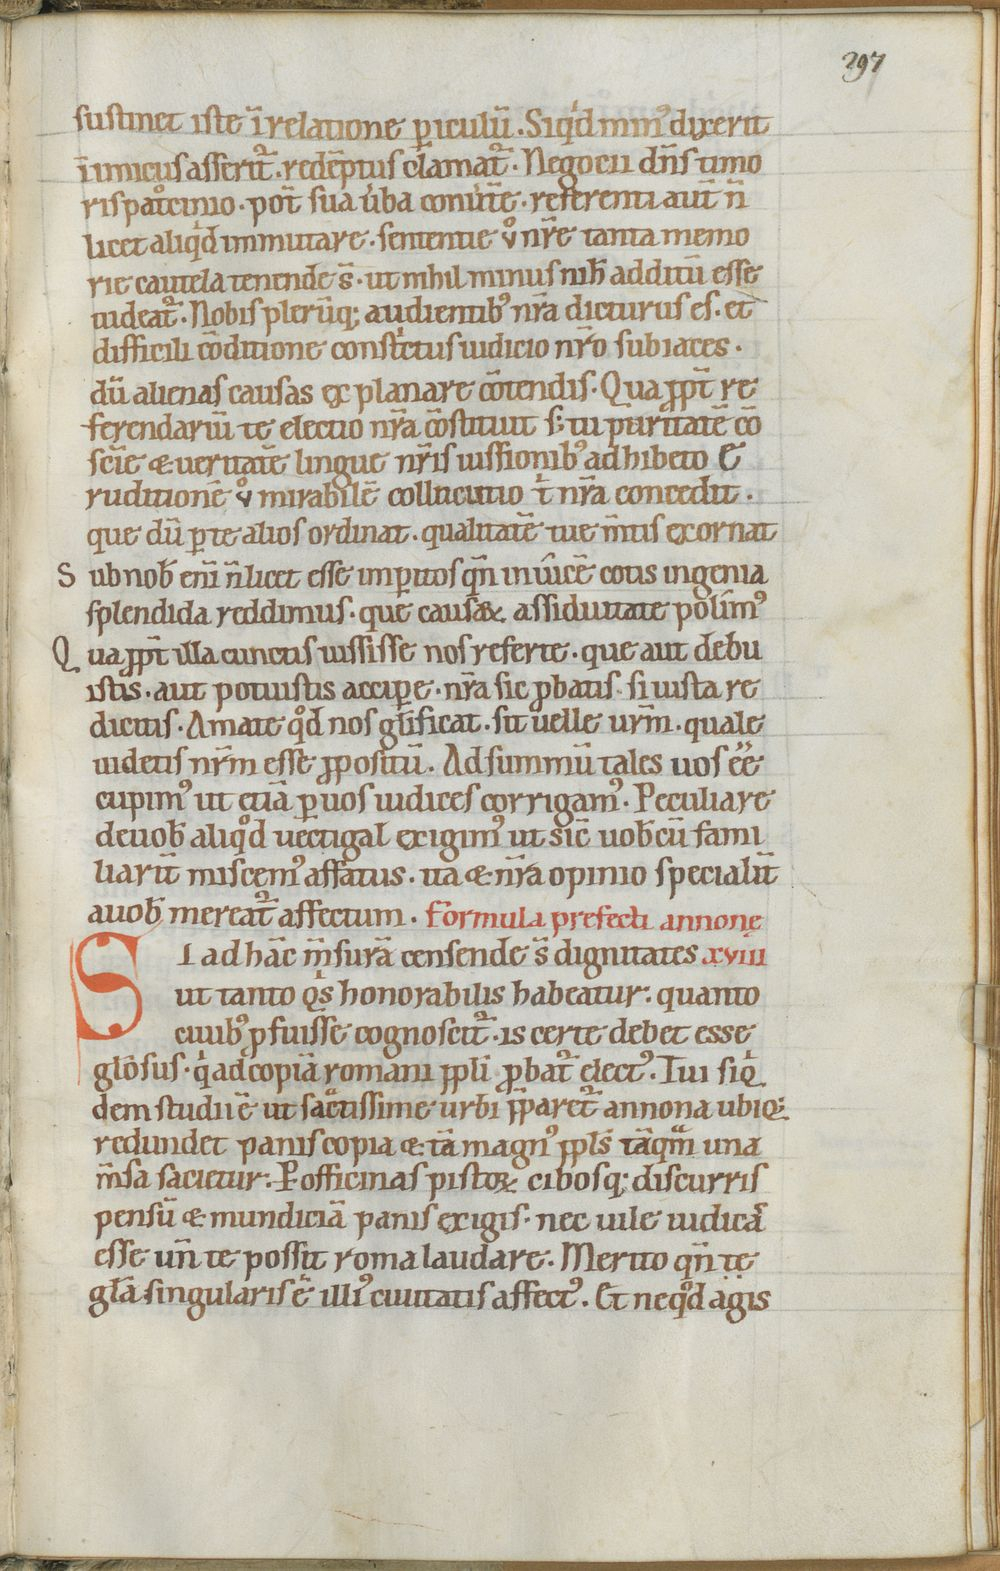 297
sustinet iste ī relatione ꝑiculū. Siqͥd minꝰ dixerit
īimicus asserit᷑. redēptus clamat᷑. Negocii dn̄s timo
ris patͦcinio. pot̄ sua ūba comūt̄e. referenti aut̄ n̄
licet aliqͥd immutare. sententie vͦ nr̄e tanta memo
rie cautela tenende s̄. ut nihil minus nih̄ additū esse
uideat᷑. Nobis plerūq; audientibꝰ nr̄a dicturus es. et
difficili cōditione constͥctus iudicio nr̄o subiaces.
dū alienas causas explanare cōtendis. Qua ꝓpt̄ re
ferendariū te electio nr̄a cōstituit s; tu puritatē cō
scīe & ueritatē lingue nr̄is iussionibꝰ adhibeto E
ruditionē vͦ mirabilē collucutio t̄ nr̄a concedit.
que dū ꝑ te alios ordinat. qualitatē tue m̄tis exornat
Sub nob̄ enī n̄ licet esse imꝑitos qn̄ in uīcē cotis ingenia
splendida reddimus. que causaꝝ assiduitate polim̄ꝰ
Qua ꝓpt̄ illa cunctis iussisse nos referte. que aut debu
istis. aut potuistis acciꝑe. nr̄a sic ꝓbatis. si iusta re
dictis. Amate qͦd nos gl̄ificat. sit uelle ur̄m. quale
uidetis nr̄m esse ꝓpositū. Ad summū tales uos eē
cupimꝰ ut etiā ꝑ uos iudices corrigamꝰ. Peculiare
de uob̄ aliqͦd uectigal exigimꝰ ut sic̄ uob̄cū fami
liariū miscemꝰ affatus. ita & nr̄a opinio specialit̄
a uob̄ mereat᷑ affectum. Formula prefecti annonę
SI ad hāc m̄surā censende s̄ dignitates xviii
ut tanto qͥs honorabilis habeatur. quanto
ciuibꝰ ꝓfuisse cognoscit᷑. is certe debet esse
gl̄osus. qͥ ad copiā romani ꝓpli ꝓbat᷑ electꝰ. Tui siq
dem studii ē ut sac̄tissime urbi p̄paret᷑ annona ubiq;
redundet panis copia & tā magnꝰ ꝓpl̄s tāqͣm una
m̄sa sacietur. ꝑ officinas pistoꝝ cibosq; discurris
pensū & mundiciā panis exigis. nec uile iudicas
esse un̄ te possit roma laudare. Merito qn̄ tę
gl̄a singularis ē illiꝰ ciuitatis affectꝰ. Et ne qͦd agis